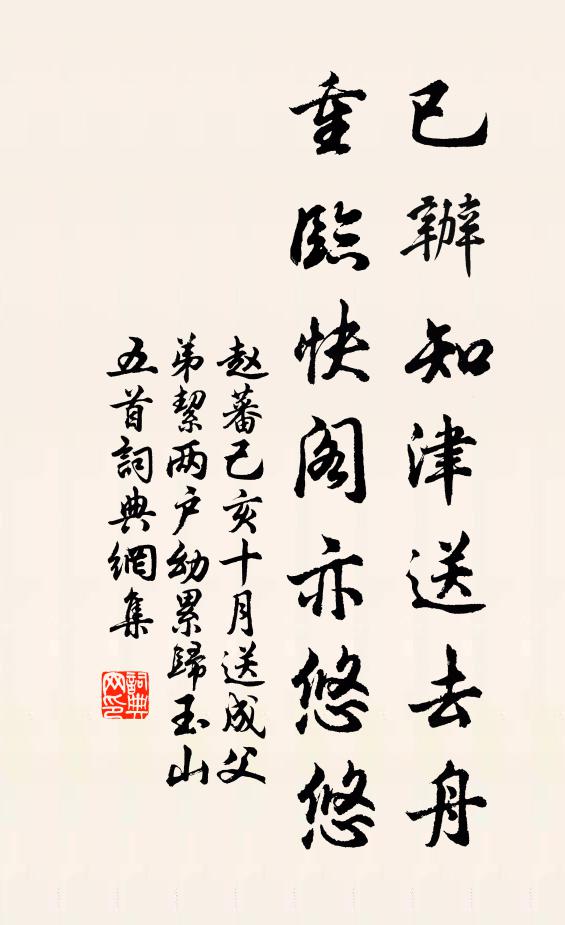 已辦知津送去舟
重臨快阁亦悠悠
赵蕃己亥十月送成父
弟絜两户幼累歸玉山
五首詞典網集
詞典網印